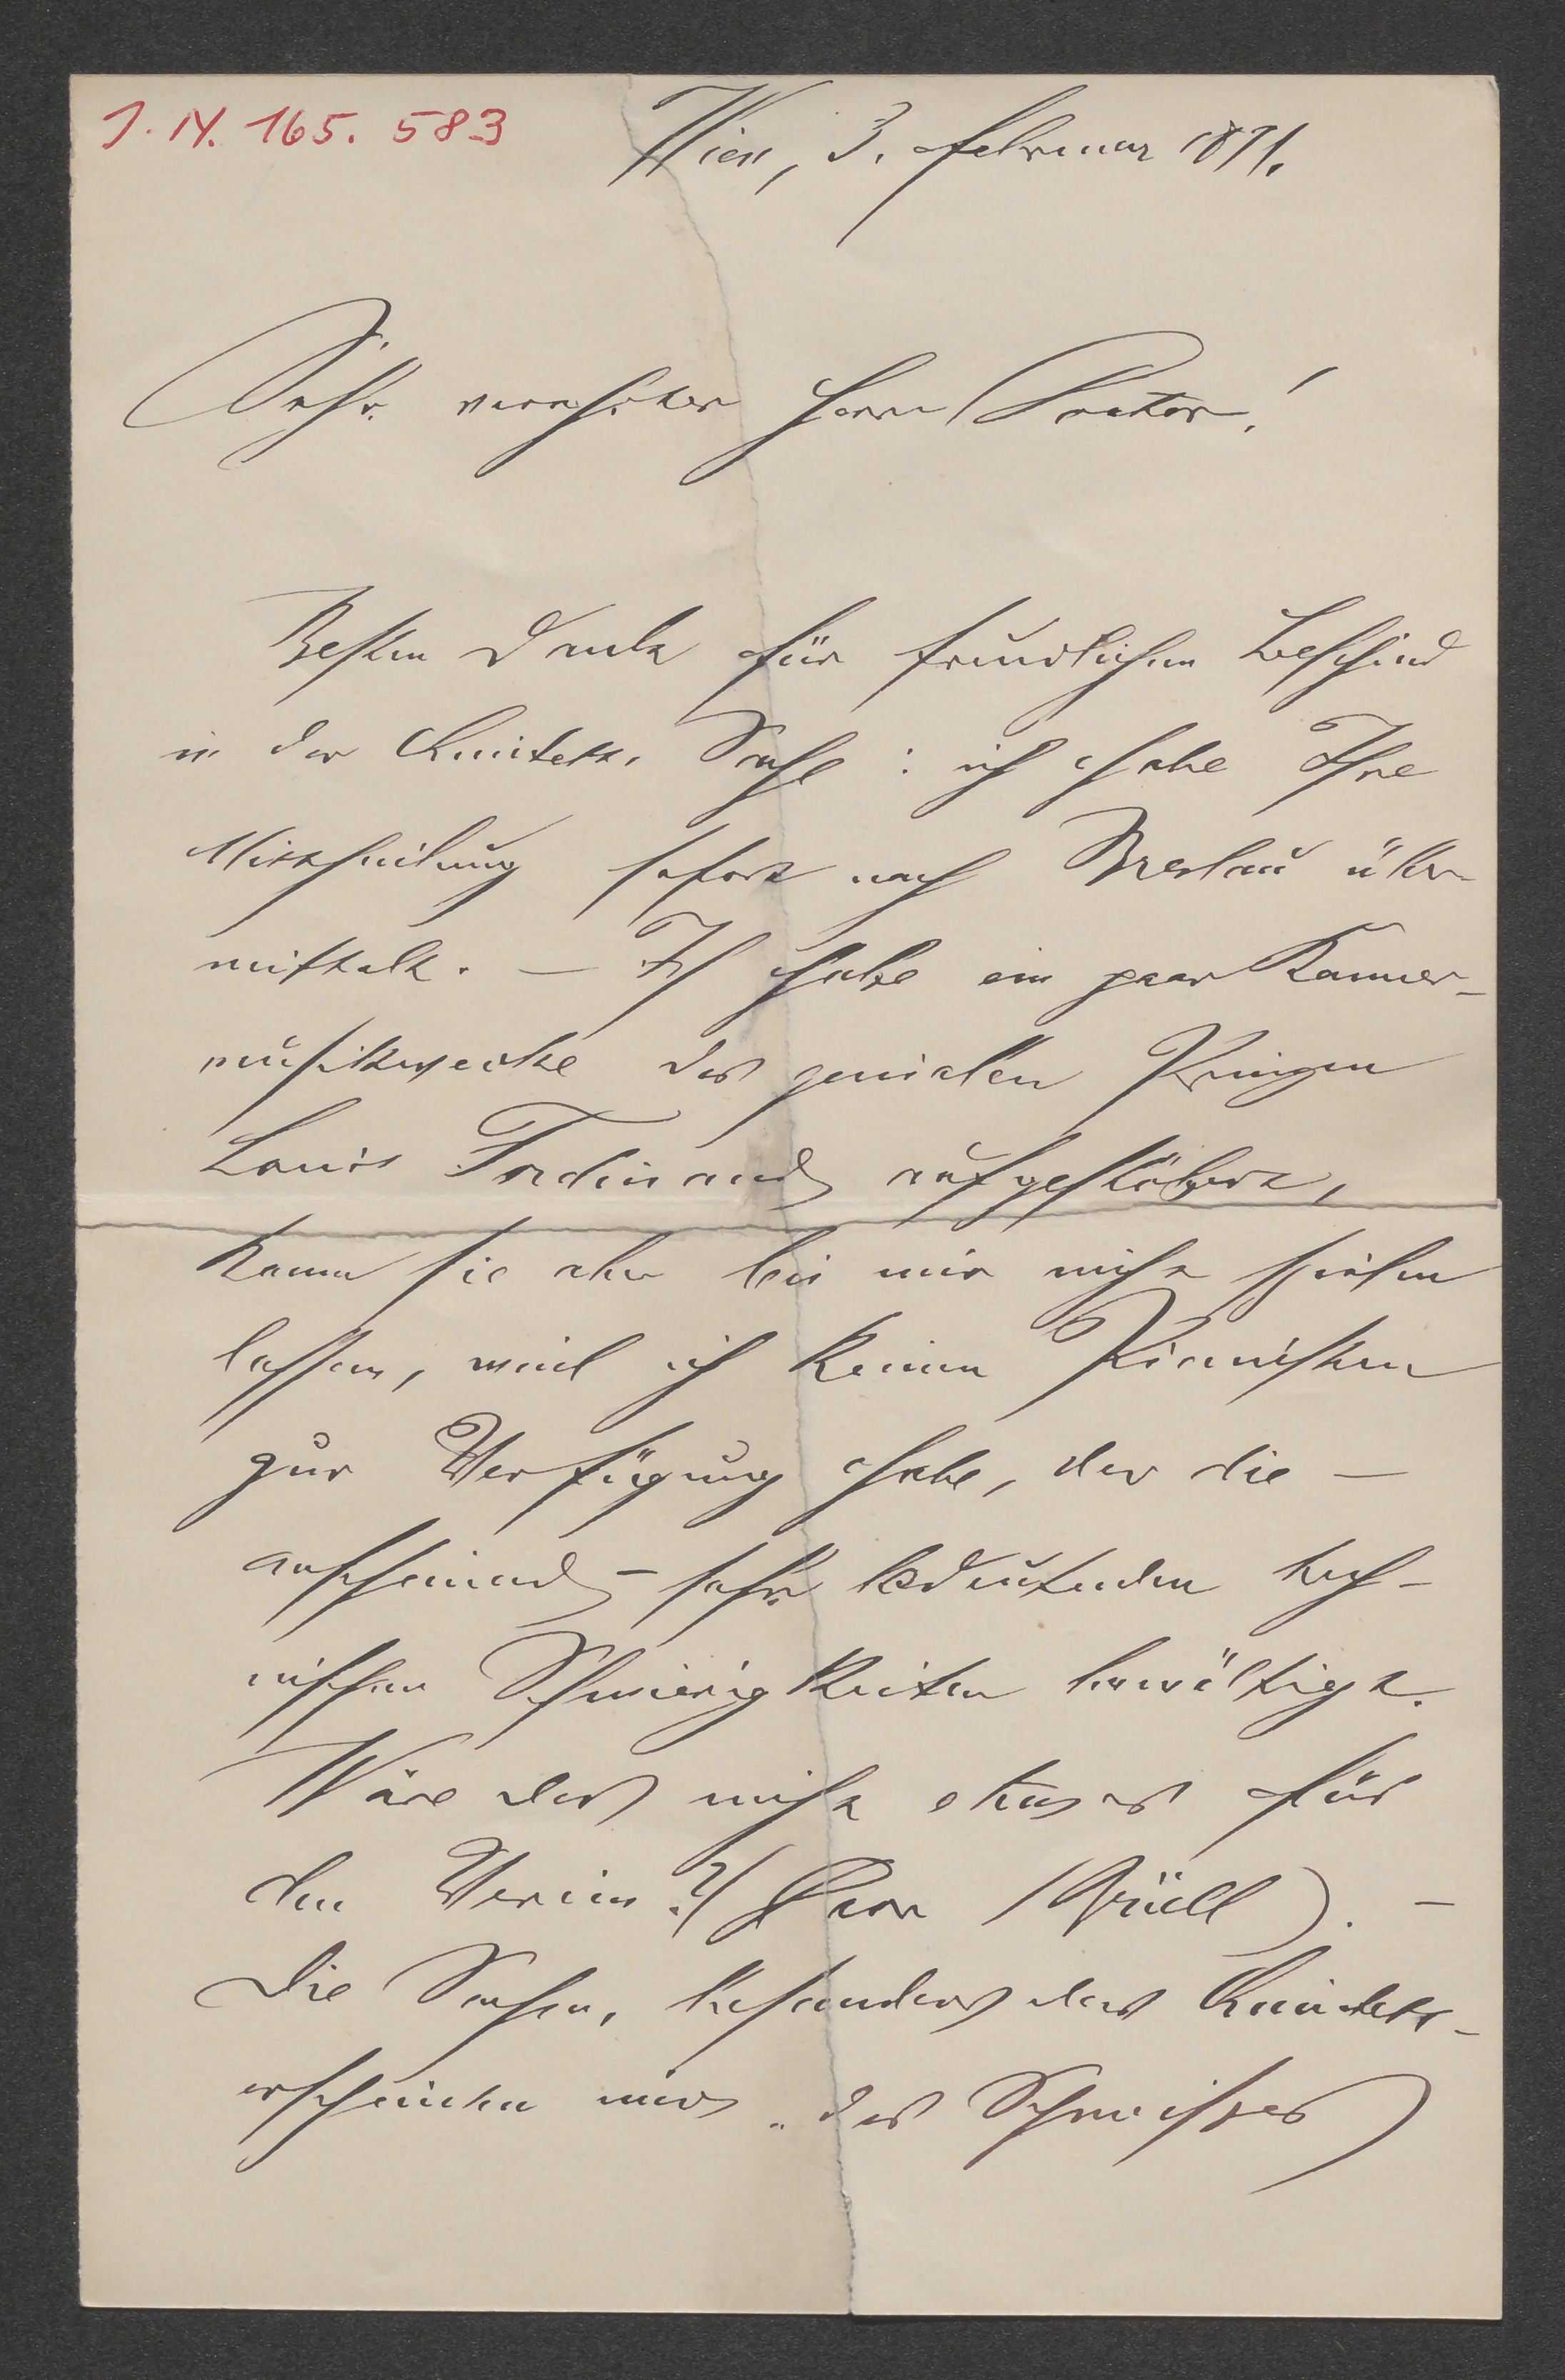 J. N. 165. 583
Wien, 3. Februar 1891.
Sehr verehrter Herr Doctor!
Besten Dank für freundlichen Bescheid
in der Quintett-Sache: ich habe Ihre
Mittheilung sofort nach Breslau über
mittelt. — Ich habe ein paar Kammer-
musikwerke des genialen Prinzen
Louis Ferdinand aufgestöbert,
kann sie aber bei mir nicht spielen
lassen, weil ich keinen Pianisten
zur Verfügung habe, der die —
anscheinend — sehr bedeutenden tech-
nischen Schwierigkeiten bewältigt.
Wäre das nicht etwas für
den Verein? (Herr Brüll). —
Die Sachen, besonders das Quintett-
erscheinen mir des Schweißes